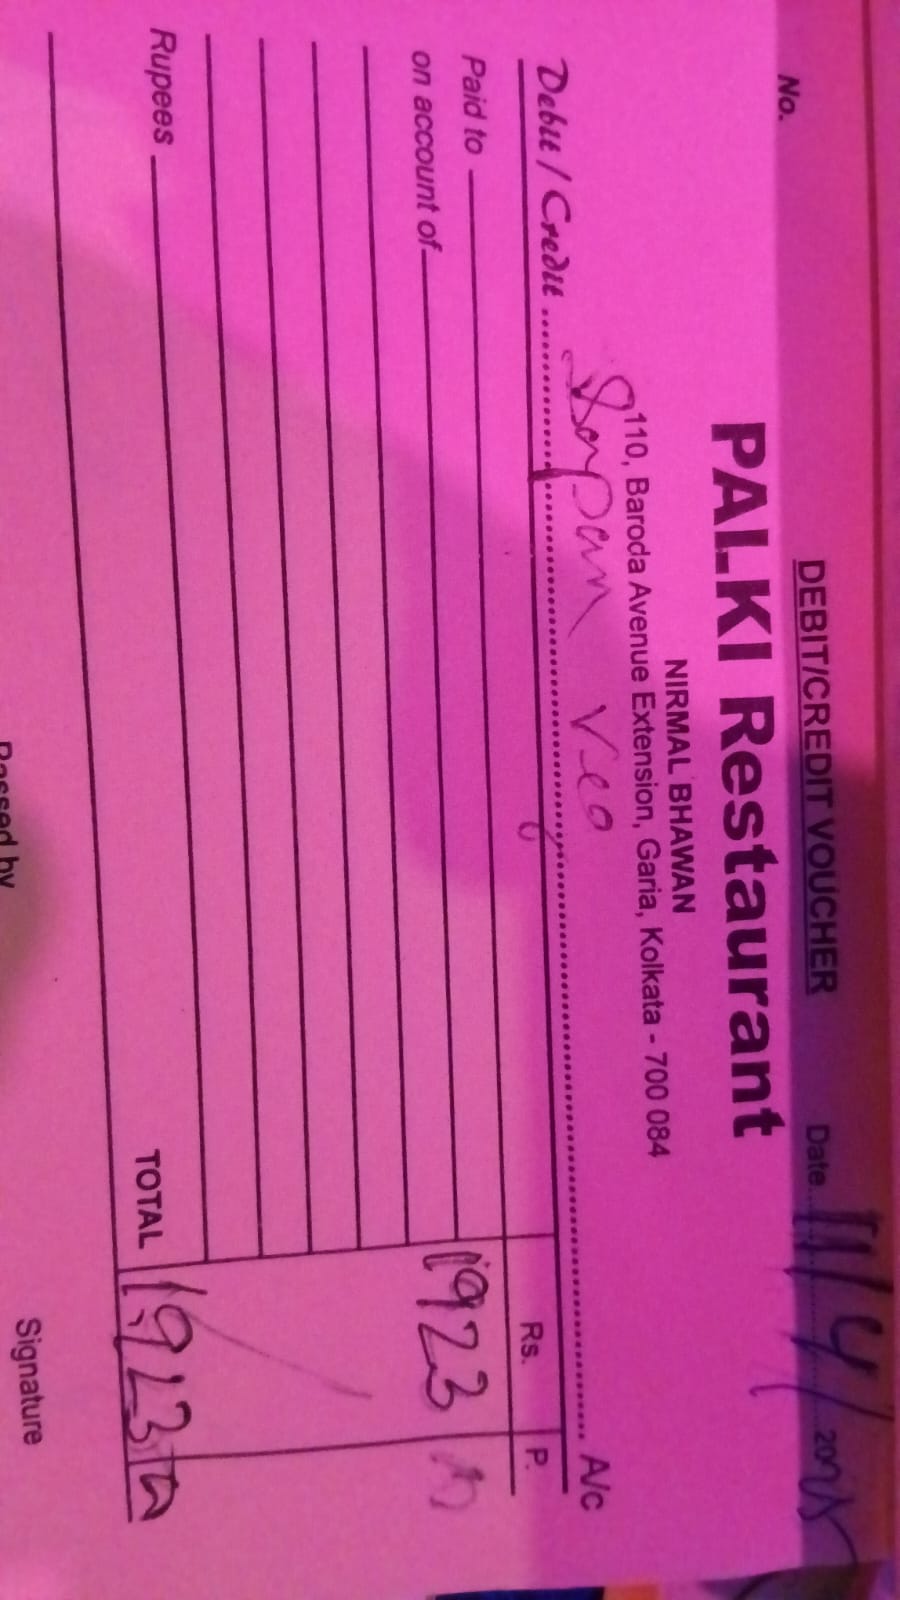 DEBIT/CREDIT VOUCHER
No. Date 11/4/2025
PALKI Restaurant
NIRMAL BHAWAN
110, Baroda Avenue Extension, Garia, Kolkata - 700 084
Debit / Credit Sapan Veg A/c
Rs. P.
Paid to
on account of 1923
Rupees TOTAL 1923
Passed by Signature